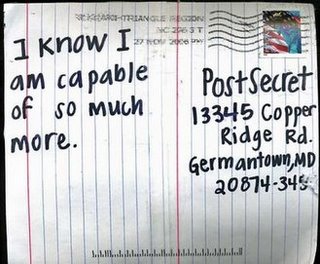 TRIANGLE REGION
NC
27 NOV 2006 PM
I know I
am capable
of so much
more.
PostSecret
13345 Copper
Ridge Rd.
Germantown, MD
20874-345